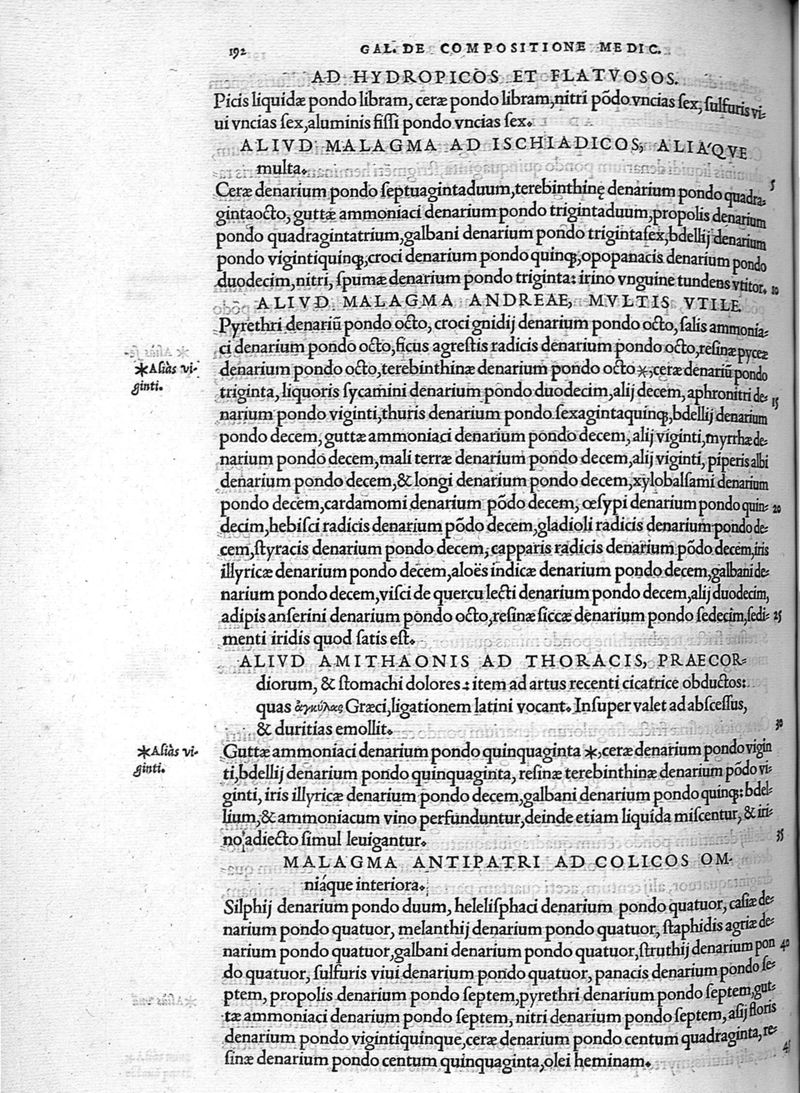 192 GAL. DE COMPOSITIONE MEDIC.
AD HYDROPICOS ET FLATVOSOS.
Picis liquidæ pondo libram, ceræ pondo libram, nitri põdo vncias sex, sulfuris vi-
ui vncias sex, aluminis fissi pondo vncias sex.
ALIVD MALAGMA AD ISCHIADICOS, ALIA'QVE
multa.
Ceræ denarium pondo septuagintaduum, terebinthinę denarium pondo quadra- 5
gintaocto, guttæ ammoniaci denarium pondo trigintaduum, propolis denarium
pondo quadragintatrium, galbani denarium pondo trigintasex, bdellij denarium
pondo vigintiquinq;, croci denarium pondo quinq;, opopanacis denarium pondo
duodecim, nitri, spumæ denarium pondo triginta: irino vnguine tundens vtitor. 10
ALIVD MALAGMA ANDREAE, MVLTIS VTILE.
Pyrethri denariũ pondo octo, croci gnidij denarium pondo octo, salis ammonia-
ci denarium pondo octo, ficus agrestis radicis denarium pondo octo, resinæ pyceæ
*Aliàs vi-
ginti.
denarium pondo octo, terebinthinæ denarium pondo octo *, ceræ denariũ pondo
triginta, liquoris sycamini denarium pondo duodecim, alij decem, aphronitri de- 15
narium pondo viginti, thuris denarium pondo sexagintaquinq;, bdellij denarium
pondo decem, guttæ ammoniaci denarium pondo decem, alij viginti, myrrhæ de-
narium pondo decem, mali terræ denarium pondo decem, alij viginti, piperis albi
denarium pondo decem, & longi denarium pondo decem, xylobalsami denarium
pondo decem, cardamomi denarium põdo decem, œsypi denarium pondo quin- 20
decim, hebisci radicis denarium põdo decem, gladioli radicis denarium pondo de-
cem, styracis denarium pondo decem, capparis radicis denarium põdo decem, iris
illyricæ denarium pondo decem, aloës indicæ denarium pondo decem, galbani de-
narium pondo decem, visci de quercu lecti denarium pondo decem, alij duodecim,
adipis anserini denarium pondo octo, resinæ siccæ denarium pondo sedecim, sedi- 25
menti iridis quod satis est.
ALIVD AMITHAONIS AD THORACIS, PRAECOR-
diorum, & stomachi dolores: item ad artus recenti cicatrice obductos:
quas ἀγκύλας Græci, ligationem latini vocant. Insuper valet ad abscessus,
& duritias emollit. 30
*Aliàs vi-
ginti.
Guttæ ammoniaci denarium pondo quinquaginta *, ceræ denarium pondo vigin
ti, bdellij denarium pondo quinquaginta, resinæ terebinthinæ denarium põdo vi-
ginti, iris illyricæ denarium pondo decem, galbani denarium pondo quinq;: bdel-
lium, & ammoniacum vino perfunduntur, deinde etiam liquida miscentur, & iri-
no adiecto simul leuigantur. 35
MALAGMA ANTIPATRI AD COLICOS OM-
niáque interiora.
Silphij denarium pondo duum, helelisphaci denarium pondo quatuor, casiæ de-
narium pondo quatuor, melanthij denarium pondo quatuor, staphidis agriæ de-
narium pondo quatuor, galbani denarium pondo quatuor, struthij denarium pon 40
do quatuor, sulfuris viui denarium pondo quatuor, panacis denarium pondo se-
ptem, propolis denarium pondo septem, pyrethri denarium pondo septem, gut-
tæ ammoniaci denarium pondo septem, nitri denarium pondo septem, asij floris
denarium pondo vigintiquinque, ceræ denarium pondo centum quadraginta, re-
sinæ denarium pondo centum quinquaginta, olei heminam.